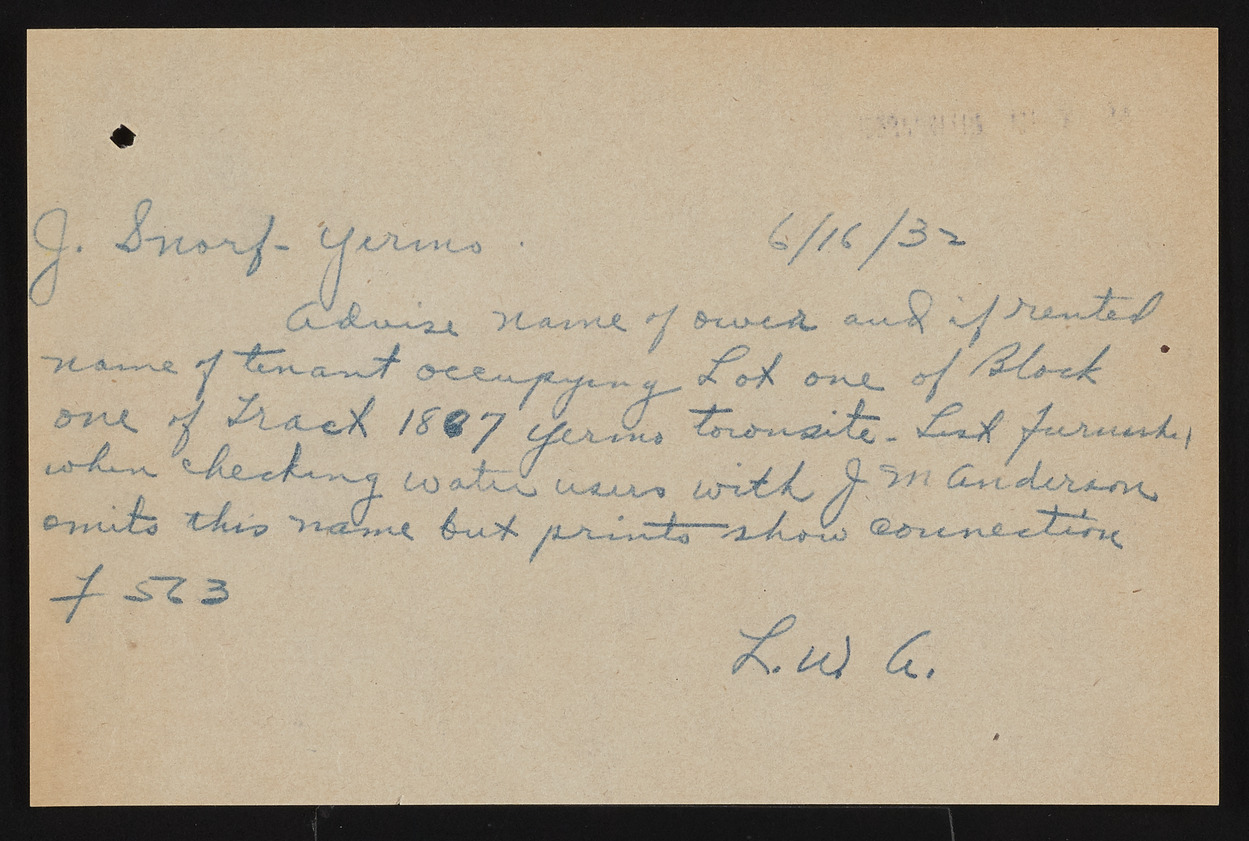 J. Snorf - Yermo 6/16/32
Advise name of owner and if rented
name of tenant occupying Lot one of Block
one of Tract 1887 Yermo townsite - List furnished
when checking water users with J M Anderson
omits this name but prints show connection
F 523
L. W. A.